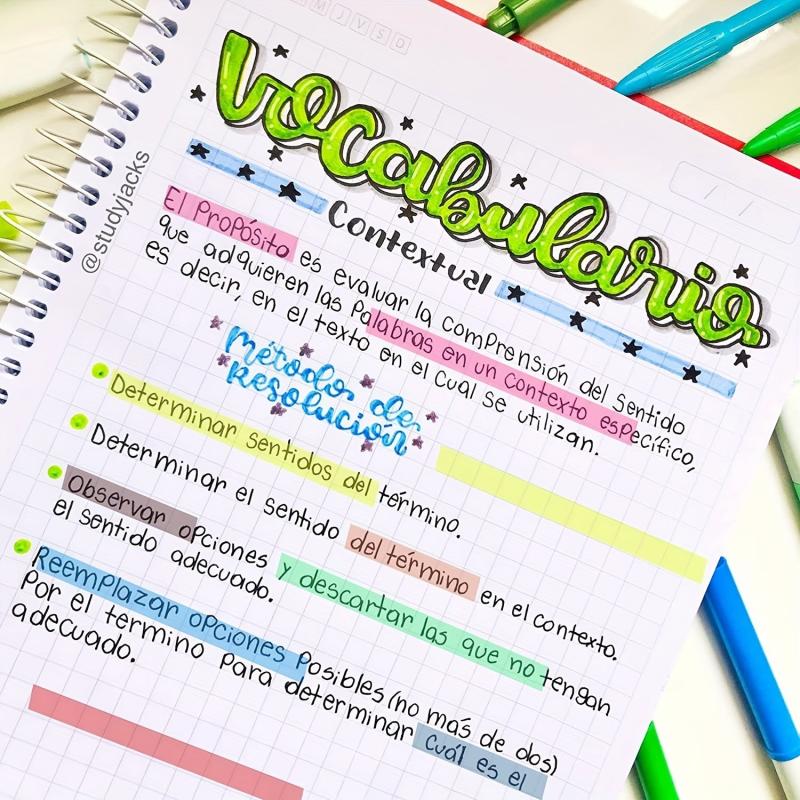 M J V S D
Vocabulario
Contextual
@studyjacks
El Propósito es evaluar la comprensión del sentido
que adquieren las palabras en un contexto específico,
es decir, en el texto en el cual se utilizan.
Método de
Resolución
Determinar sentidos del término.
Determinar el sentido del término en el contexto.
Observar opciones y descartar las que no tengan
el sentido adecuado.
Reemplazar opciones posibles (no más de dos)
Por el termino para determinar cuál es el
adecuado.